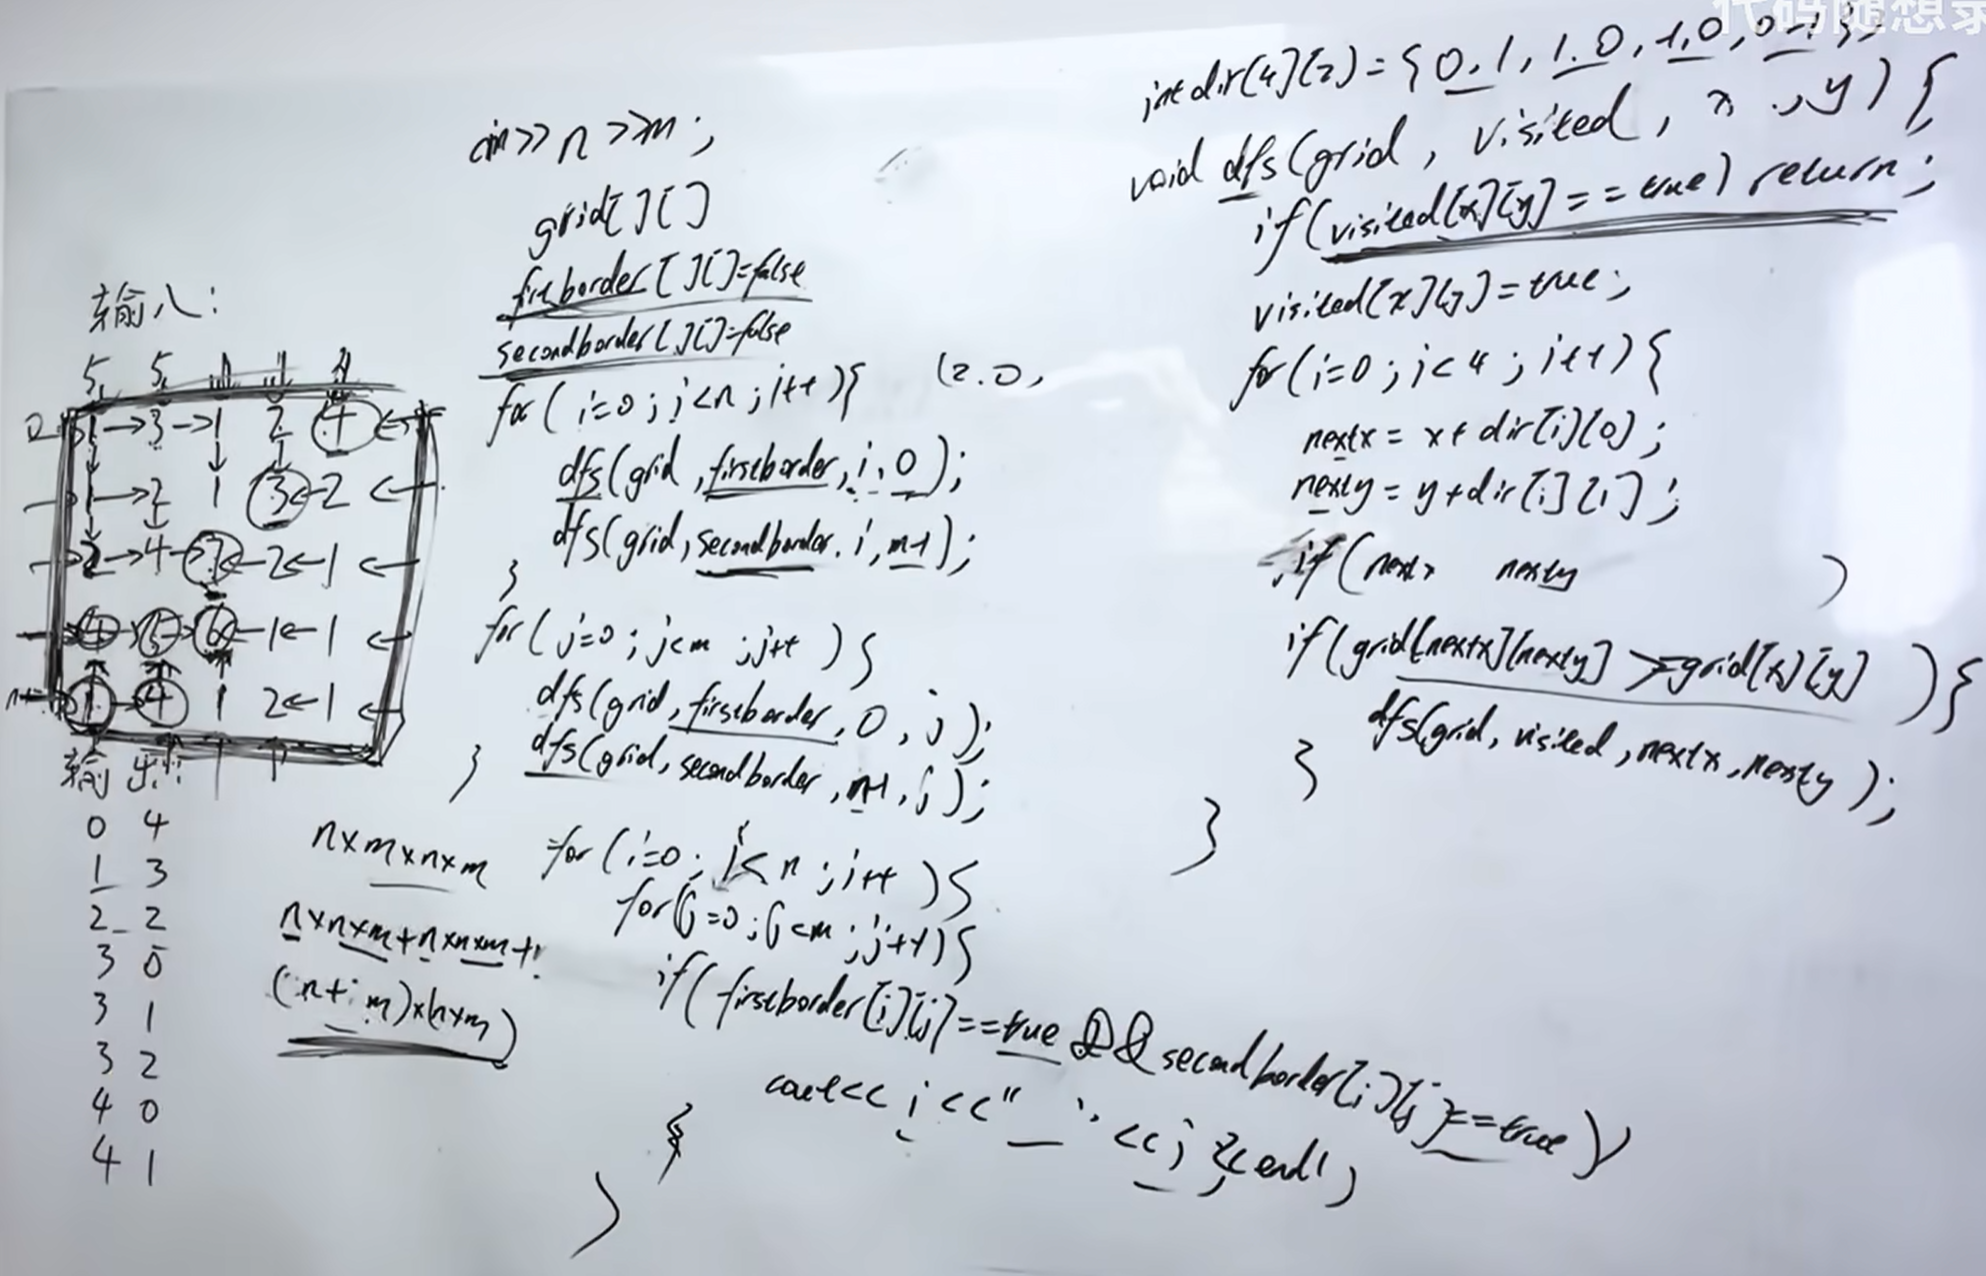 代码随想录
输入：
5 5
0 1 3 1 2 4
1 2 1 3 2
2 4 7 2 1
4 5 6 1 1
1 4 1 2 1
输出：
0 4
1 3
2 2
3 0
3 1
3 2
4 0
4 1
n×m×n×m
n×n×m+n×n×m+
(n+m)×(n×m)
cin>>n>>m;
grid[][]
firstborder[][]=false
secondborder[][]=false
for(i=0;i<n;i++){
(2.0,
dfs(grid,firstborder,i,0);
dfs(grid,secondborder,i,m-1);
}
for(j=0;j<m;j++){
dfs(grid,firstborder,0,j);
dfs(grid,secondborder,n-1,j);
}
for(i=0;i<n;i++){
for(j=0;j<m;j++){
if(firstborder[i][j]==true && secondborder[i][j]==true)
cout<<i<<" "<<j<<endl;
}
}
int dir[4][2]={0,1,1,0,-1,0,0,-1};
void dfs(grid, visited, x, y){
if(visited[x][y]==true) return;
visited[x][y]=true;
for(i=0;i<4;i++){
nextx=x+dir[i][0];
nexty=y+dir[i][1];
if(nextx nexty )
if(grid[nextx][nexty]>=grid[x][y]){
dfs(grid,visited,nextx,nexty);
}
}